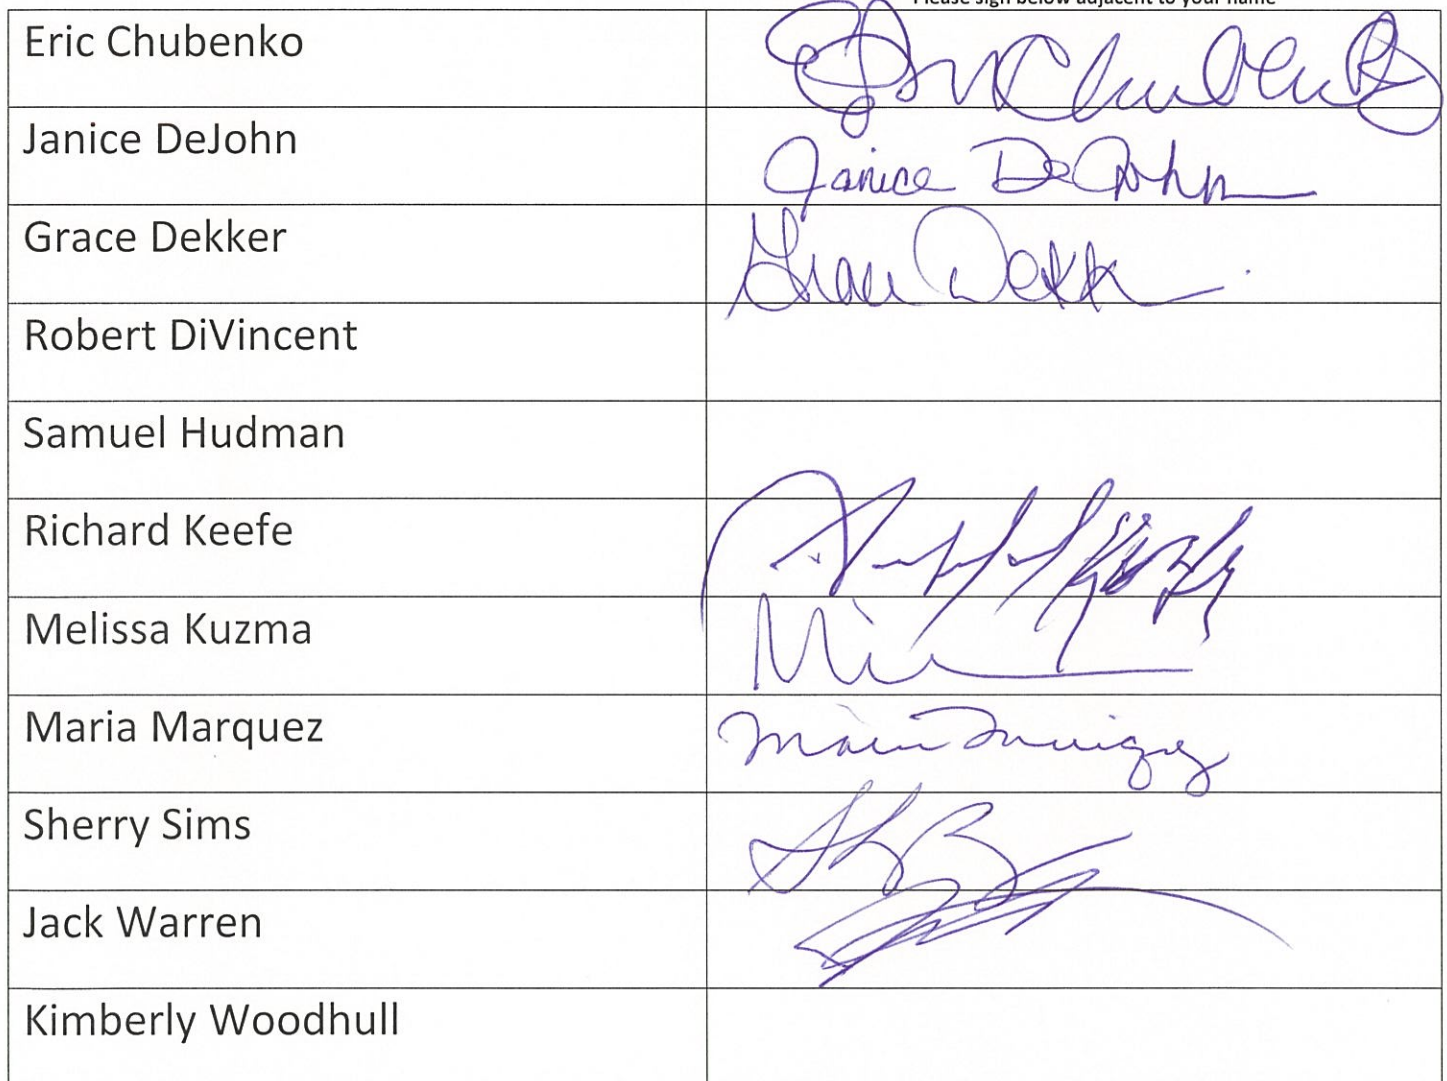 Please sign below adjacent to your name
Eric Chubenko
Janice DeJohn Janice DeJohn
Grace Dekker Grace Dekk
Robert DiVincent
Samuel Hudman
Richard Keefe
Melissa Kuzma
Maria Marquez
Sherry Sims
Jack Warren
Kimberly Woodhull